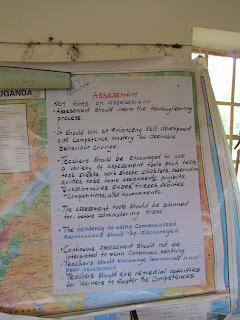 UGANDA
Assessment
Key Hints on assessment
- Assessment should inform the teaching/learning
process.
- It should aim at enhancing skill development
and competence mastery for desirable
behaviour change.
- Teachers should be encouraged to use
a variety of assessment tools such tests,
task sheets, work sheets, checklists, observation
guides, take home assignments, projects,
questionnaires, quizes, debates
competitions, and tournaments.
- The assessment tools should be planned
for before administering them
- The tendency of using commercialized
examinations should be discouraged.
- Continuous assessment should not be
interpreted to mean continuous testing.
- Teachers should encourage self and
peer assessment
- Teachers should give remedial activities
for learners to master the competences.